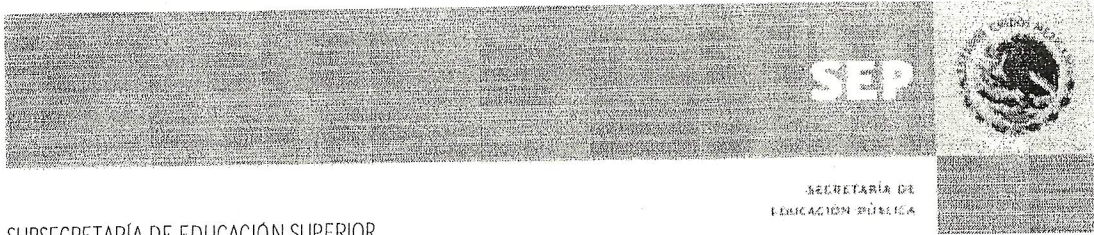 SEP
SECRETARÍA DE
EDUCACIÓN PÚBLICA
SUBSECRETARÍA DE EDUCACIÓN SUPERIOR